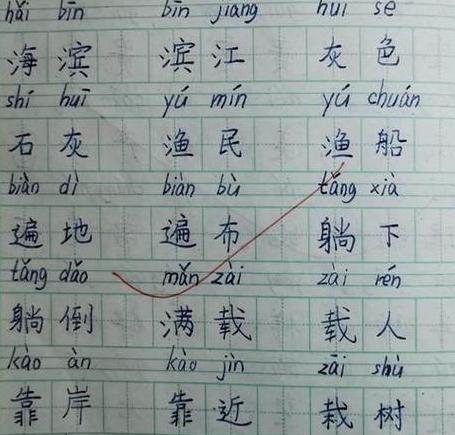 hǎi bīn bīn jiāng huī sè
海滨 滨江 灰色
shí huī yú mín yú chuán
石灰 渔民 渔船
biàn dì biàn bù tǎng xià
遍地 遍布 躺下
tǎng dǎo mǎn zài zài rén
躺倒 满载 载人
kào àn kào jìn zāi shù
靠岸 靠近 栽树